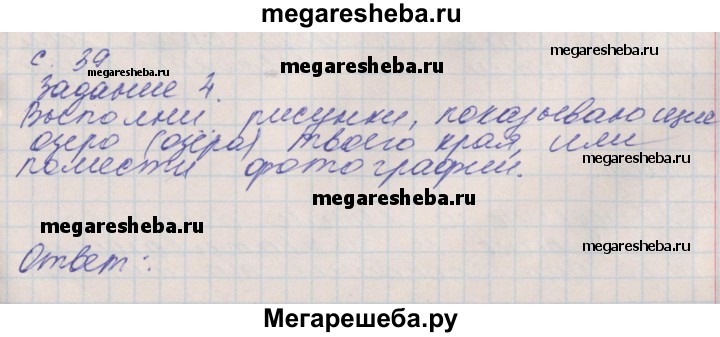 megaresheba.ru
с. 39
megaresheba.ru
megaresheba.ru
megaresheba.ru
Задание 4.
Выполни рисунки, показывающие
озеро (озёра) твоего края, или
помести фотографии.
megaresheba.ru
megaresheba.ru
megaresheba.ru
megaresheba.ru
Ответ:
Мегарешеба.ру